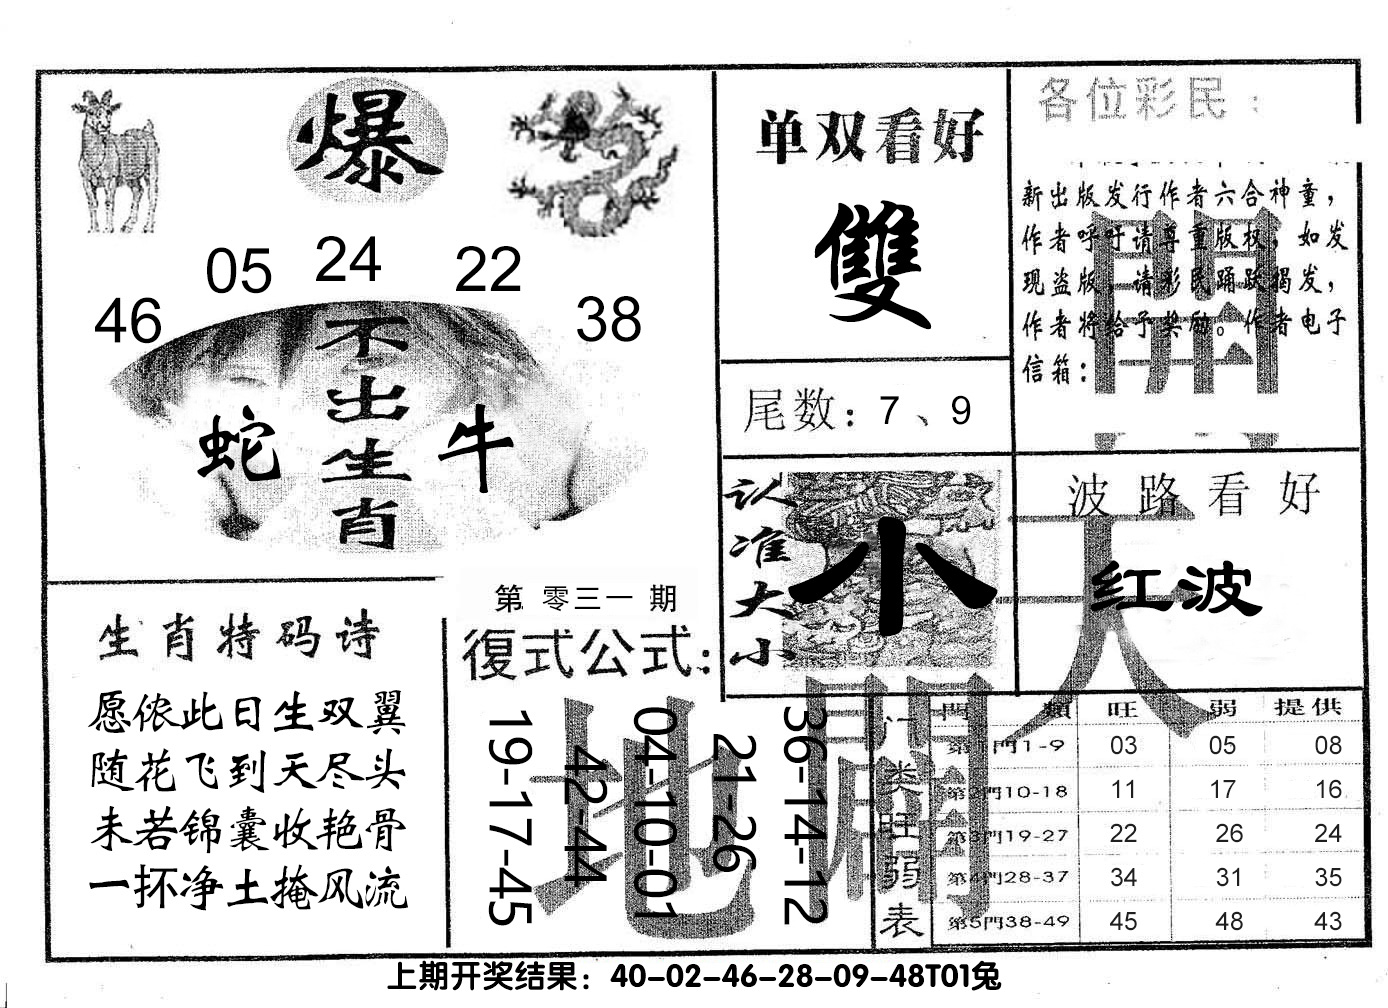 爆
05 24 22
46 38
不出生肖
蛇 牛
单双看好
雙
尾数：7、9
各位彩民：
新出版发行作者六合神童，
作者呼吁请尊重版权，如发
现盗版，请彩民踊跃揭发，
作者将给予奖励。作者电子
信箱：
認准大小
小
波路看好
红波
生肖特码诗
愿侬此日生双翼
随花飞到天尽头
未若锦囊收艳骨
一抔净土掩风流
第零三一期
復式公式：
19-17-45
42-44
04-10-01
21-26
36-14-12
開天地開
门类旺弱表
門類 旺 弱 提供
第1門1-9 03 05 08
第2門10-18 11 17 16
第3門19-27 22 26 24
第4門28-37 34 31 35
第5門38-49 45 48 43
上期开奖结果：40-02-46-28-09-48T01兔